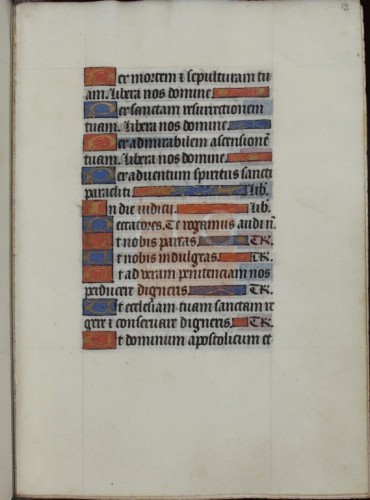 13
Per mortem ⁊ sepulturam tu
am. Libera nos domine
Per sanctam resurrectionem
tuam. Libera nos domine
Per admirabilem ascensionē
tuam. Libera nos domine
Per adventum spiritus sancti
paracliti. Lib.
In die iudicij. Lib.
Peccatores. Te rogamus audi n̄.
Ut nobis parcas. Te R.
Ut nobis indulgeas. Te R.
Ut ad veram penitenciam nos
perducere digneris. Te R.
Ut ecclesiam tuam sanctam re
gere ⁊ conservare digneris. Te R.
Ut dominum apostolicum et